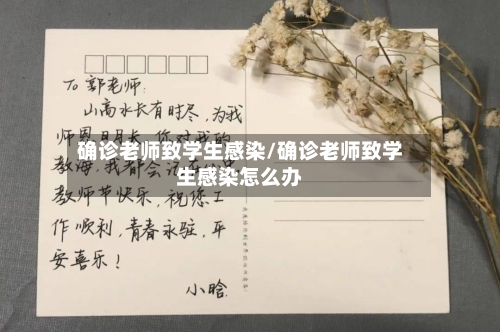 To 郭老师:
山高水长有时尽,为我
师恩日月长
确诊老师致学生感染/确诊老师致学
生感染怎么办
教师节快乐,祝您工
作顺利,青春永驻,平
安喜乐!
小晗.